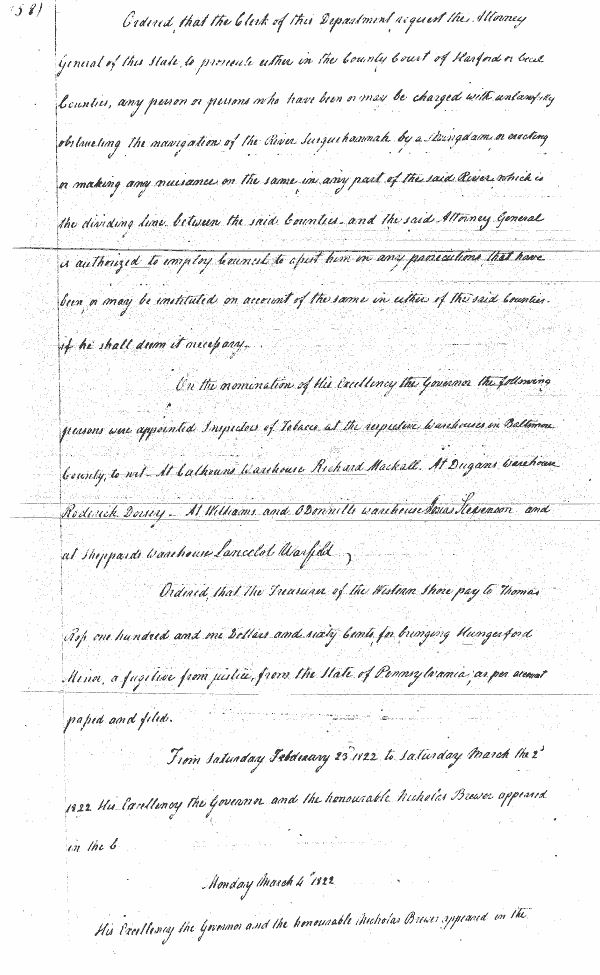 58)
Ordered, that the Clerk of this Department request the Attorney
General of this State to prosecute either in the County Court of Harford or Cecil
Counties, any person or persons who have been or may be charged with unlawfully
obstructing the navigation of the River Susquehannah by a dam or erecting
or making any nuisance on the same in any part of the said River which is
the dividing line between the said Counties and the said Attorney General
is authorized to employ Council to assist him in any prosecutions that have
been or may be instituted on account of the same in either of the said Counties
if he shall deem it necessary.
On the nomination of His Excellency the Governor the following
persons were appointed Inspectors of Tobacco at the respective Warehouses in Baltimore
County, to wit - At Calhouns Warehouse Richard Mackall. At Dugans Warehouse
Roderick Dorsey - At Williams and ODonnills warehouse Josias Stevenson and
at Sheppards Warehouse Lancelot Warfield
Ordered that the Treasurer of the Western Shore pay to Thomas
Ross one hundred and one Dollars and sixty Cents, for bringing Hungerford
Minor, a fugitive from justice, from the State of Pennsylvania, as per account
passed and filed.
From Saturday February 23d 1822 to Saturday March the 2d
1822 His Excellency the Governor and the honourable Nicholas Brewer appeared
in the C
Monday March 4th 1822
His Excellency the Governor and the honourable Nicholas Brewer appeared in the